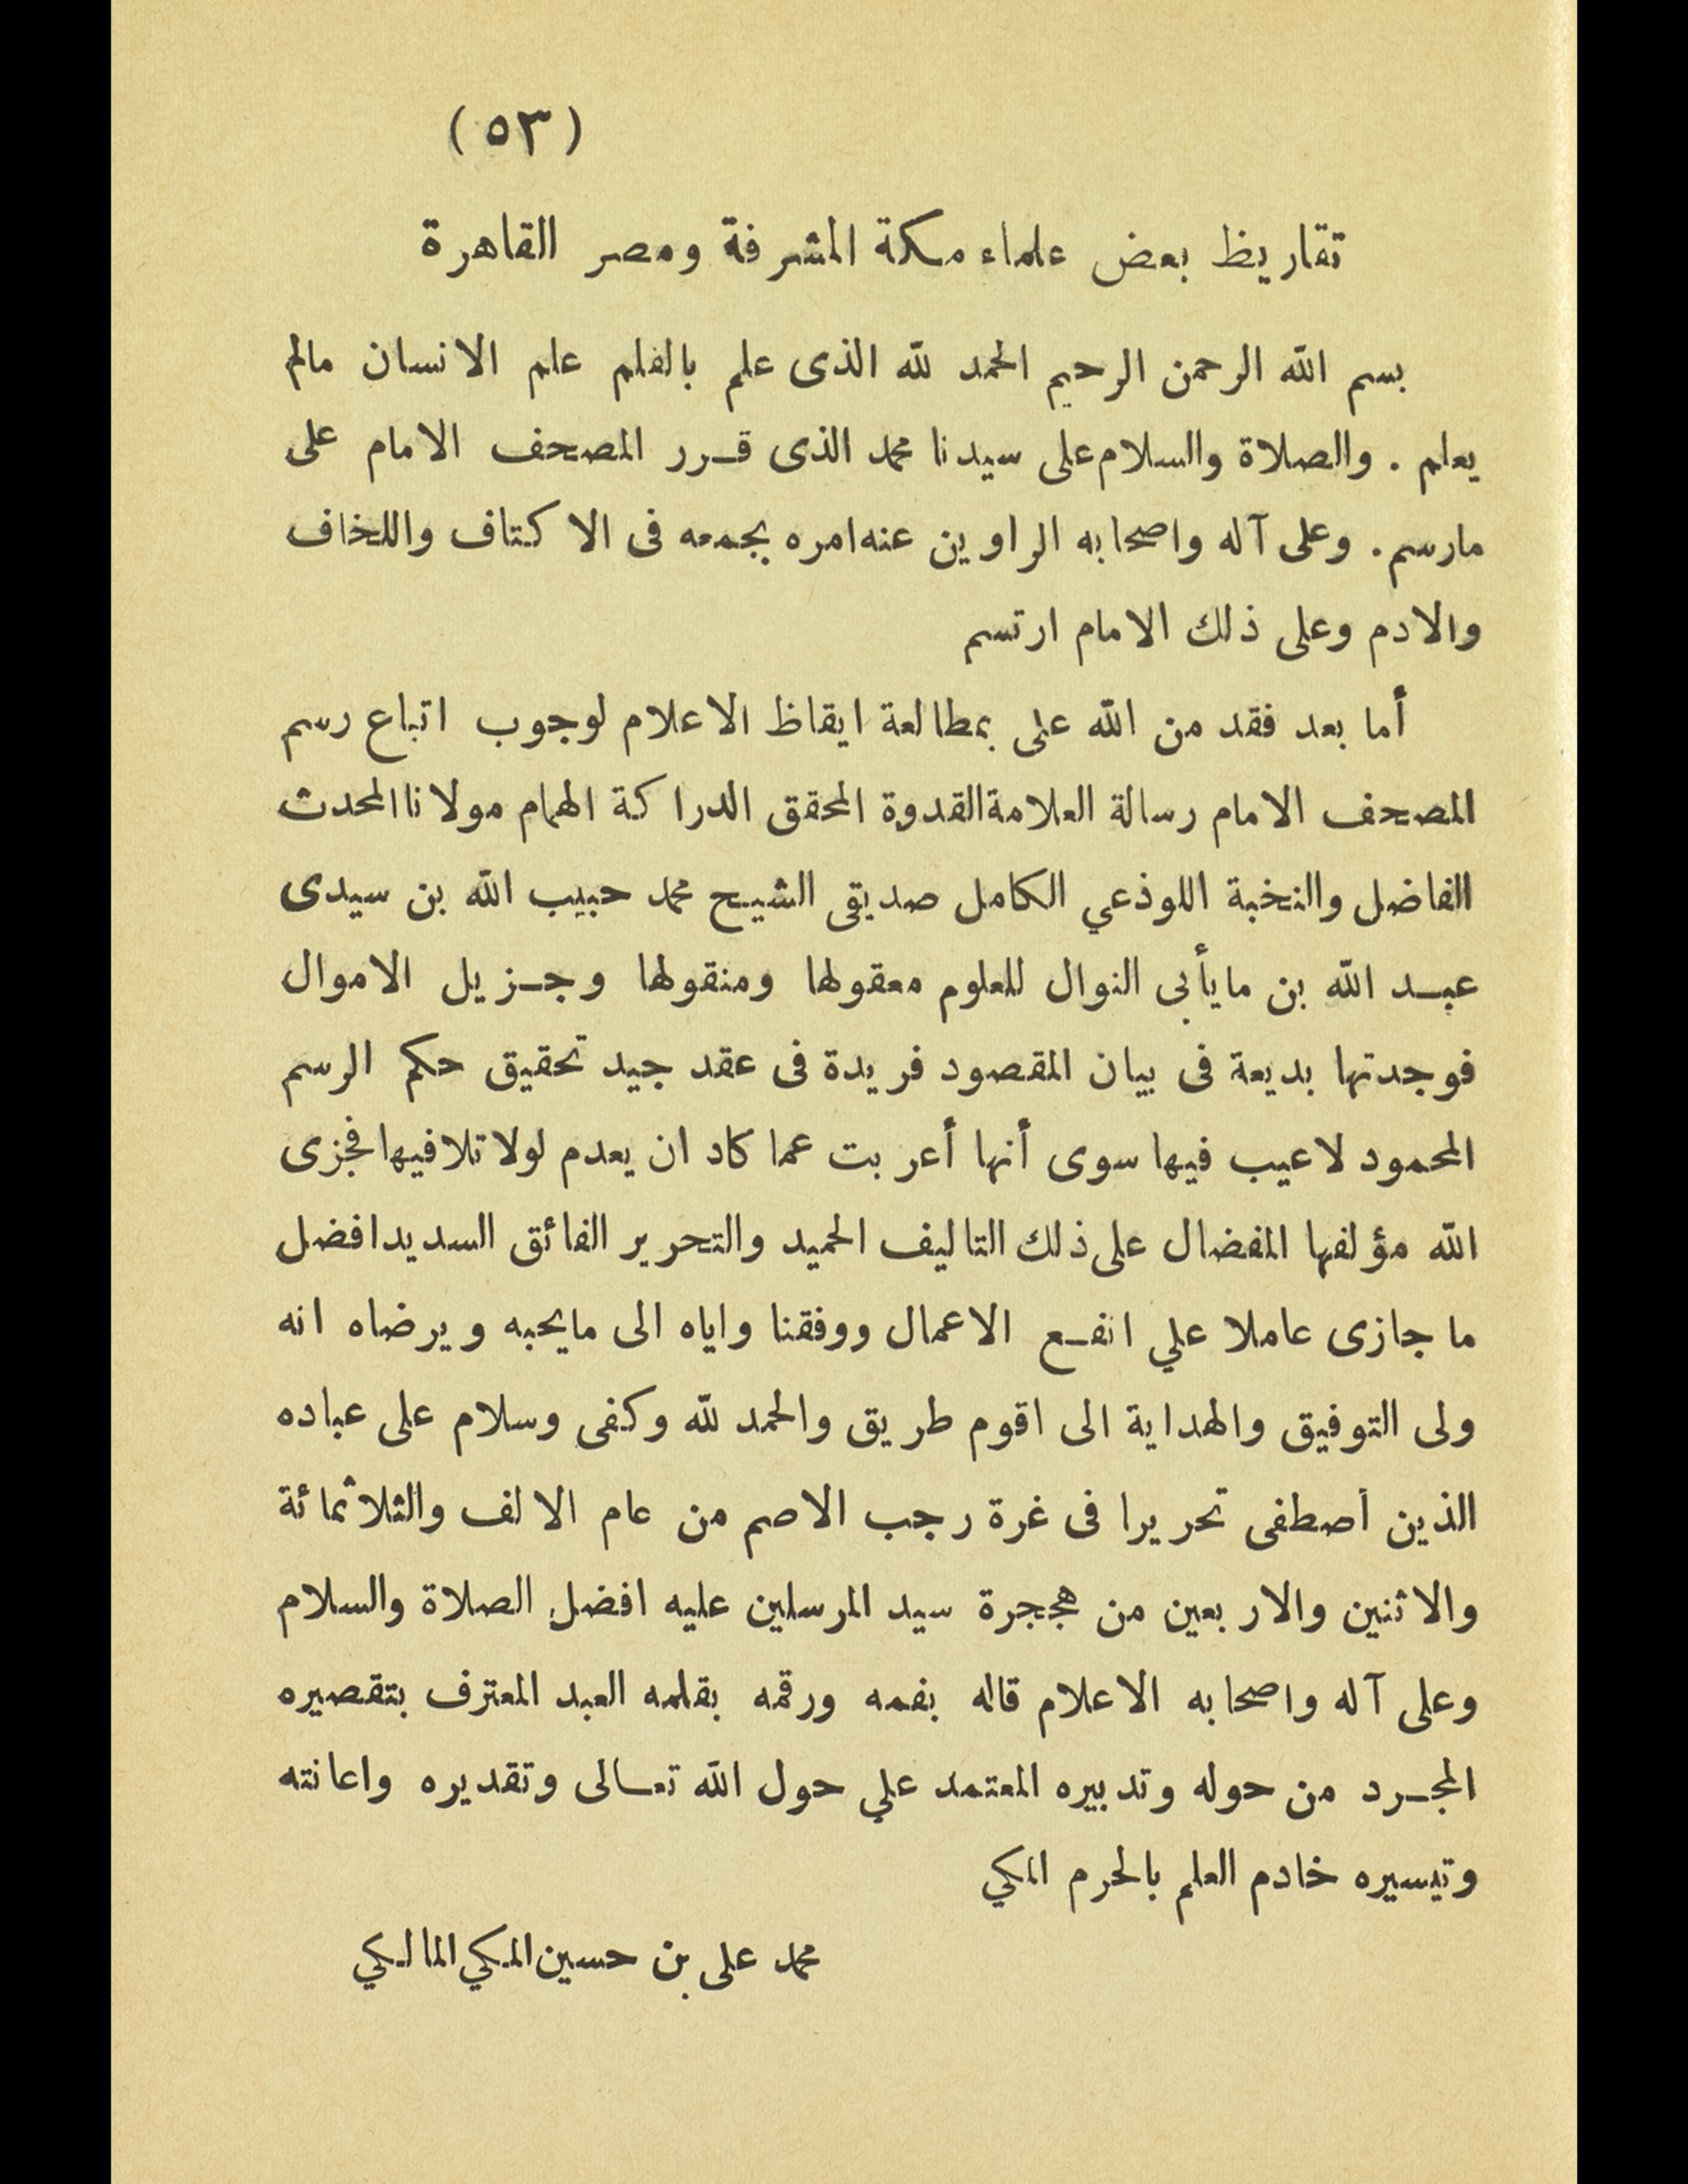 (٥٣)
تقاريظ بعض علماء مكة المشرفة ومصر القاهرة
بسم الله الرحمن الرحيم الحمد لله الذى علم بالقلم علم الانسان مالم
يعلم . والصلاة والسلام على سيدنا محمد الذى قرر المصحف الامام على
مارسم . وعلى آله واصحابه الراوين عنه امره بجمعه فى الاكتاف واللخاف
والادم وعلى ذلك الامام ارتسم
أما بعد فقد من الله على بمطالعة ايقاظ الاعلام لوجوب اتباع رسم
المصحف الامام رسالة العلامة القدوة المحقق الدراكة الهمام مولانا المحدث
الفاضل والنخبة اللوذعي الكامل صديقى الشيخ محمد حبيب الله بن سيدى
عبد الله بن مايأبى النوال للعلوم معقولها ومنقولها وجزيل الاموال
فوجدتها بديعة فى بيان المقصود فريدة فى عقد جيد تحقيق حكم الرسم
المحمود لاعيب فيها سوى أنها أعربت عما كاد ان يعدم لولا تلافيها فجزى
الله مؤلفها المفضال على ذلك التاليف الحميد والتحرير الفائق السديد افضل
ما جازى عاملا علي انفع الاعمال ووفقنا واياه الى مايحبه ويرضاه انه
ولى التوفيق والهداية الى اقوم طريق والحمد لله وكفى وسلام على عباده
الذين أصطفى تحريرا فى غرة رجب الاصم من عام الالف والثلاثمائة
والاثنين والاربعين من هججرة سيد المرسلين عليه افضل الصلاة والسلام
وعلى آله واصحابه الاعلام قاله بفمه ورقمه بقلمه العبد المعترف بتقصيره
المجرد من حوله وتدبيره المعتمد علي حول الله تعالى وتقديره واعانته
وتيسيره خادم العلم بالحرم المكي
محمد على بن حسين المكي المالكي